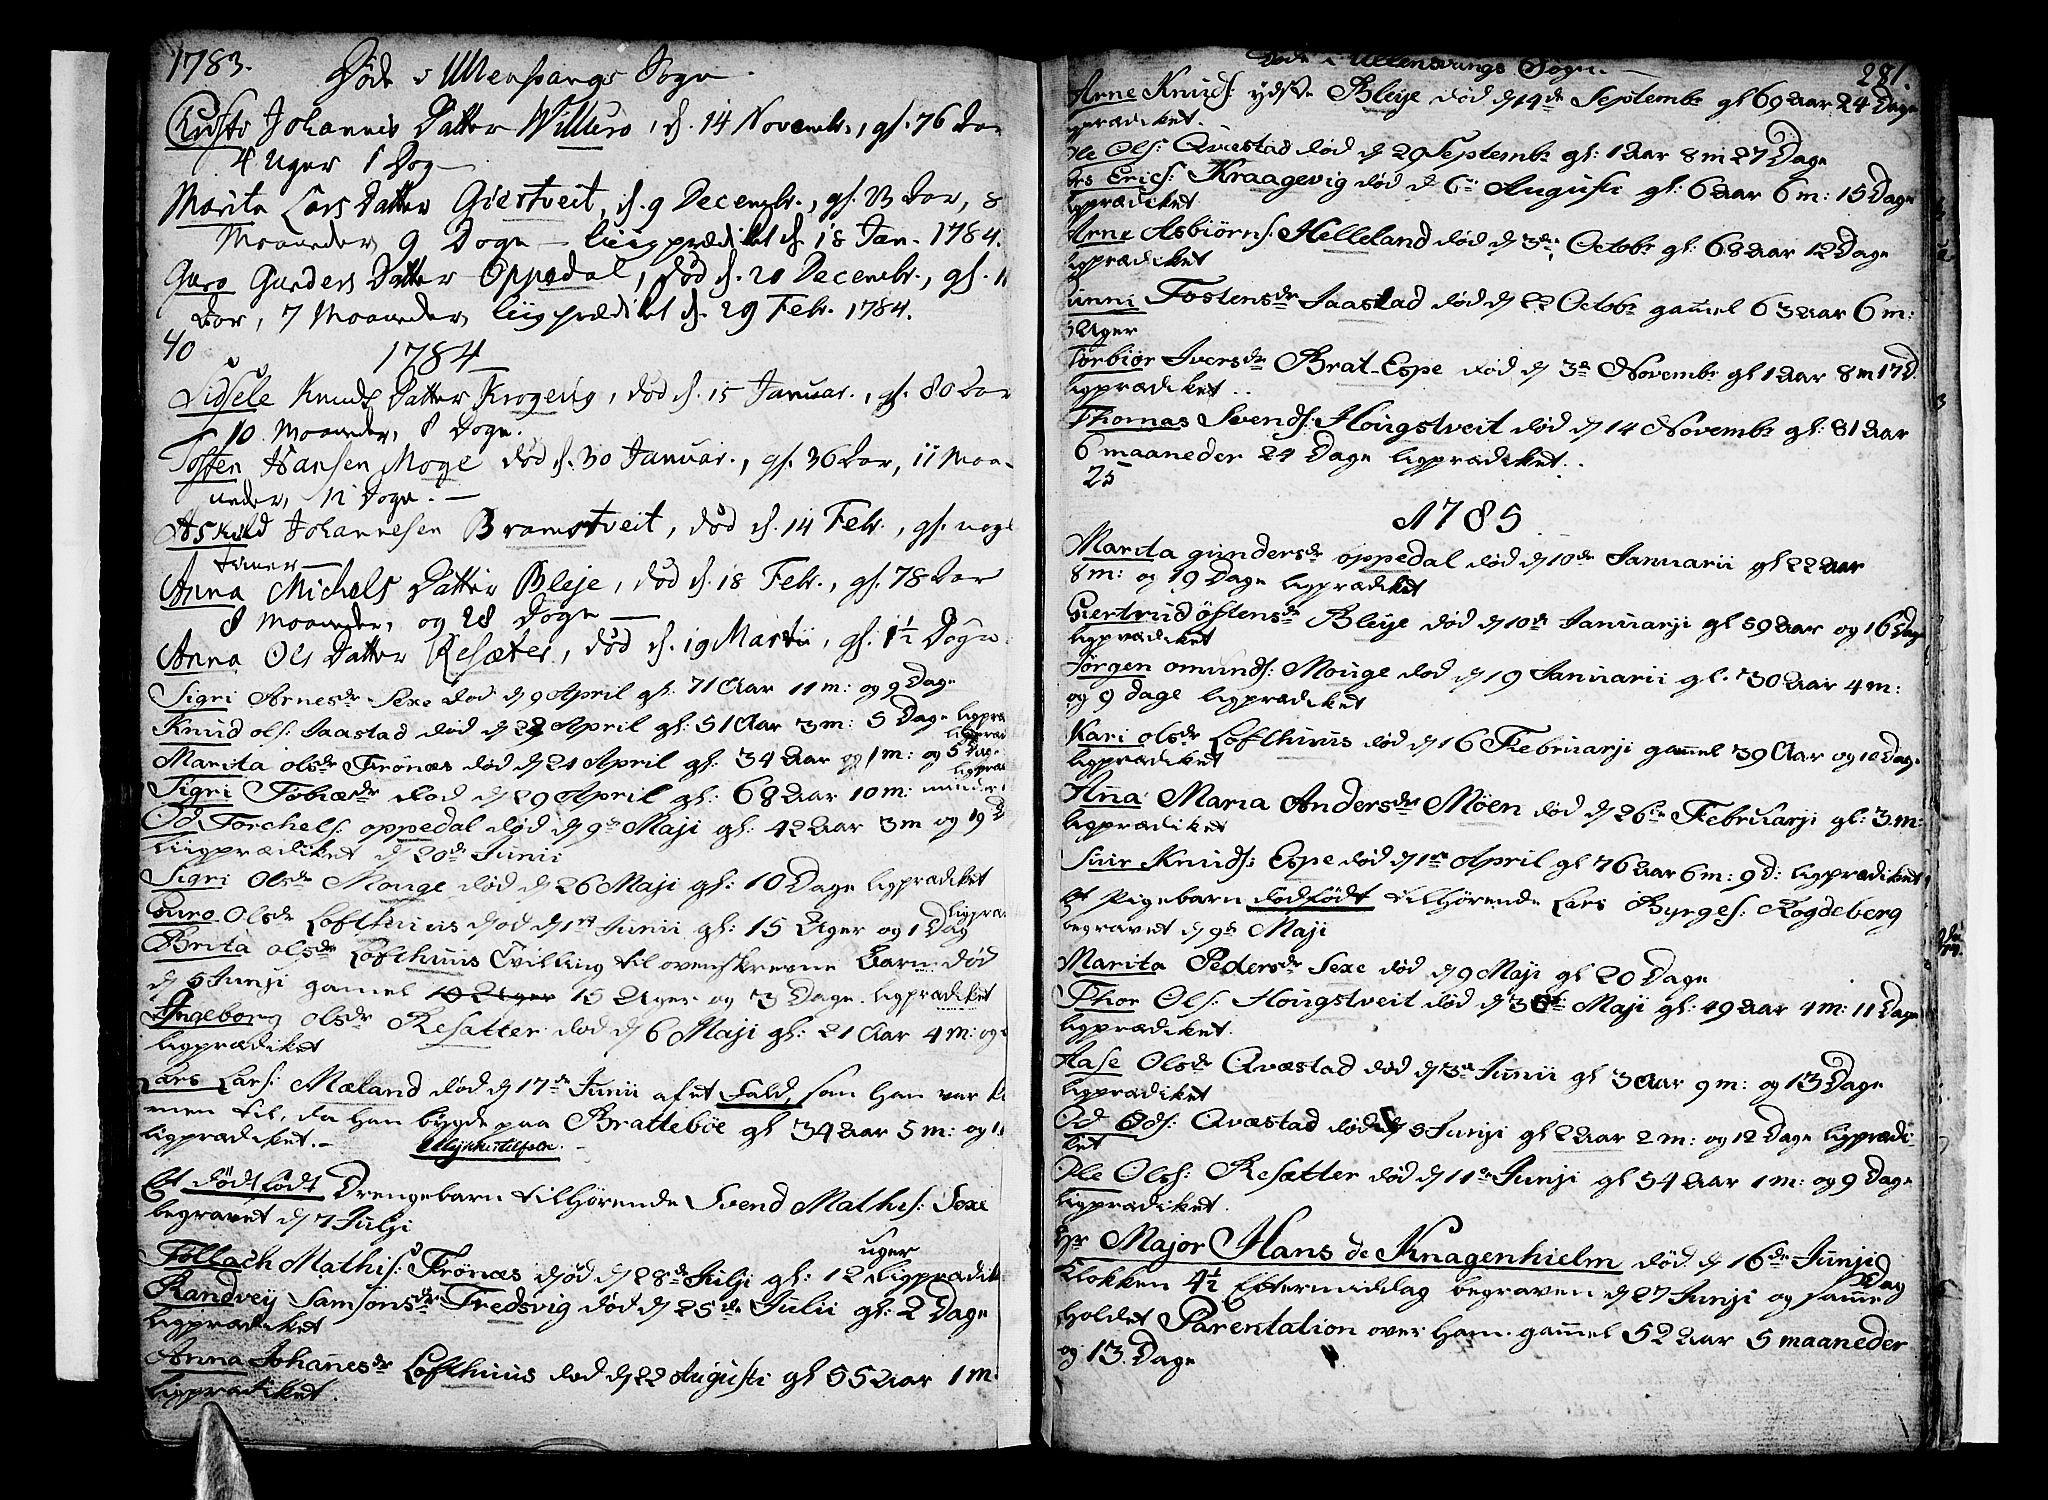 1783.
Døde i Ullensvangs Sogn.
Johannis Datter Willure, d. 14 Novembr., gl. 76 Aar
4 Uger 1 Dag
Marita Lars Datter Giestveit, d. 9 Decembr., gl. 23 Aar, 8
Maaneder 9 Dage — liigprædiket d. 18 Jan. 1784.
Guro Gunders Datter Oppedal, død d. 20 Decembr., gl. 11
Aar, 7 Maaneder, liigprædiket d. 29 Febr. 1784.
40
1784
Sidsele Knuds Datter Krogevig, død d. 15 Januar., gl. 80 Aar
10 Maaneder, 8 Dage.
Tosten Hansen Moge død d. 30 Januar., gl. 36 Aar, 11 Maa-
neder, 12 Dage. —
Askild Johannesen Bramstveit, død d. 14 Febr., gl. nogl
timer —
Anna Michels Datter Bleje, død d. 18 Febr., gl. 78 Aar
8 Maaneder, og 28 Dage —
Anna Ols Datter Resæter, død d. 19 Martii, gl. 1½ Døgn
Sigri Arnesdr Sexe død d 9 April gl: 71 Aar 11 m: og 9 Dage
Knud ols: Jaastad død d 22 April gl: 51 Aar 3 m: 5 Dage ligpræ
Marita olsdr Frønæs død d 21 April gl: 34 Aar og 1 m: og 5 Dage ligpræd
Sigri Tobiædr død d 29 April gl: 68 Aar 10 m: mindr ligpræ
Od Torchels: oppedal død d 9de Maji gl: 42 Aar 3 m og 19 D
liigprædiket d 20de Junii
Sigri Olsdr Mouge død d 26 Maji gl: 10 Dage ligprædiket
Guro Olsdr Lofthuus død d 1ste Junii gl: 15 Uger og 1 Dag ligpræ
Brita olsdr Lofthuus Tvilling til ovenskrevne Barn død
d 5 Junji gamel 10 Uger 15 Uger og 3 Dage ligprædiket
Ingeborg olsdr Resætter død d 6 Maji gl: 21 Aar 4 m: og
ligprædiket
Lars Lars: Mæland død d 17de Junii af et Fald, som han var k
men til, da han bygde paa Brattebøe gl 34 Aar 5 m: og 1
ligprædiket. — Ulykkestilfelde. —
Et dødfødt Drengebarn tilhørende Svend Mathis: Sexe
begravet d 7 Julji
uger
Follach Mathis: Frønæs død d 28de Julji gl: 12 ligprædik
Randvej Samsonsdr Fredsvig død d 25de Julii gl: 2 Dage
ligprædiket
Anna Johanesdr Lofthuus død d 22 Augusti gl 55 Aar 1 m:
ligprædiket.
Døde i Ullensvangs Sogn.
281.
Arne Knuds: ydste Bleje død d 14de Septembr gl 69 Aar 24 Dage
prædiket.
Ole Ols: Qvæstad død d 29 Septembr gl: 1 Aar 8 m 27 Dage
Erics: Kraagevig død d 6te Augusti gl: 6 Aar 6 m: 15 Dage
ligprædiket
Arne Asbiørns: Helleland død d 3de Octobr gl: 68 Aar 12 Dage
ligprædiket
Tostensdr Jaastad død d 22 Octobr gammel 63 Aar 6 m:
3 Uger
Torbiør Iversdr Brat-Espe død d 3de Novembr gl 1 Aar 8 m 17 D.
ligprædiket.
Thomas Svends: Hougstveit død d 14 Novembr gl: 81 Aar
6 maaneder 24 Dage ligprædiket.
25
1785
Marita gundersdr oppedal død d 10de Januarii gl 22 Aar
8 m: og 19 Dage ligprædiket
Giertrud østensdr Bleje død d 10de Januarji gl 59 Aar og 16 Dage
ligprædiket
Jørgen omunds: Mouge død d 19 Januarii gl. 30 Aar 4 m:
og 9 dage ligprædiket
Kari olsdr Lofthuus død d 16 Februarji gammel 39 Aar og 10 Dage
ligprædiket
Aña Maria Andersdr Moen død d 26te Februarji gl: 3 m:
ligprædiket
Siur Knuds: Espe død d 1ste April gl 76 Aar 6 m: 9 d: ligprædiket
et Pigebarn dødfødt tilhørende Lars Byrges: Rogdeberg
begravet d 9de Maji
Marita Pedersdr Sexe død d 9 Maji gl 20 Dage
Thor Ols: Hougstveit død d Maji gl: 49 Aar 4 m: 11 Dage
ligprædiket.
Aase Olsdr Qvæstad død d 3de Junii gl 3 Aar 9 m: og 13 Dage
ligprædiket
Od Ods: Qvæstad død d 5 Junji gl 2 Aar 2 m: og 12 Dage ligprædi-
ket
Ole Ols: Resætter død d 11te Junji gl 54 Aar 1 m: og 9 Dage
ligprædiket.
Hr Major Hans de Knagenhielm død d 16de Junji
Klokken 4½ Eftermiddag begraven d 27 Junji og samme Dag
holdet Parentation over ham. gammel 52 Aar 5 maaneder
og 13. Dage